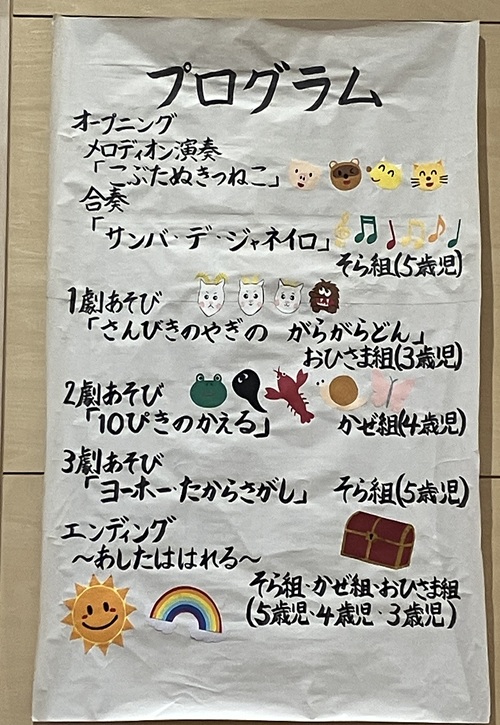 プログラム
オープニング
メロディオン演奏
「こぶたぬきつねこ」
合奏
「サンバ・デ・ジャネイロ」
そら組(5歳児)
1劇あそび
「さんびきのやぎの がらがらどん」
おひさま組(3歳児)
2劇あそび
「10ぴきのかえる」 かぜ組(4歳児)
3劇あそび
「ヨーホー・たからさがし」 そら組(5歳児)
エンディング
〜あしたははれる〜
そら組・かぜ組・おひさま組
(5歳児・4歳児・3歳児)